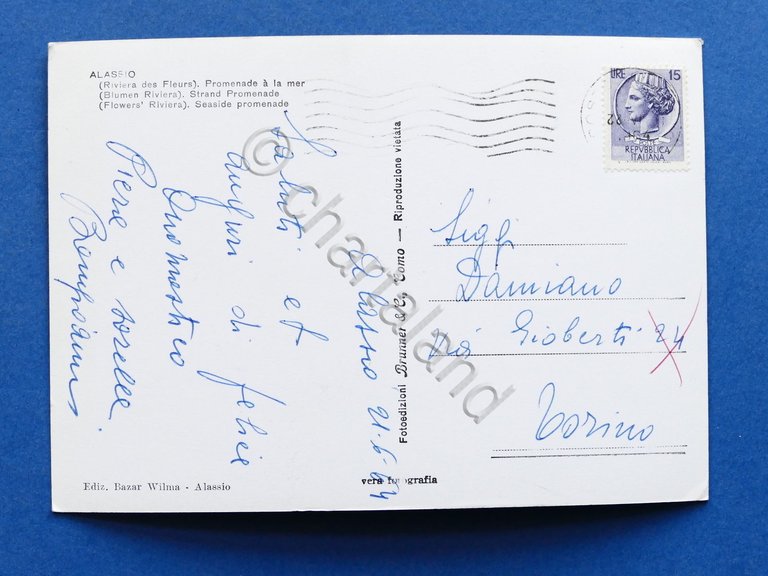 ALASSIO
(Riviera des Fleurs). Promenade à la mer
(Blumen Riviera). Strand Promenade
(Flowers' Riviera). Seaside promenade
LIRE 15
REPVBBLICA
ITALIANA
Alassio 21-6-64
Saluti et
Auguri di felice
Onomastico
Piera e sorelle
Sigg
Damiano
Via Gioberti 24
Torino
Fotoedizioni Brunner & C., Como — Riproduzione vietata
vera fotografia
Ediz. Bazar Wilma - Alassio
© chartaland